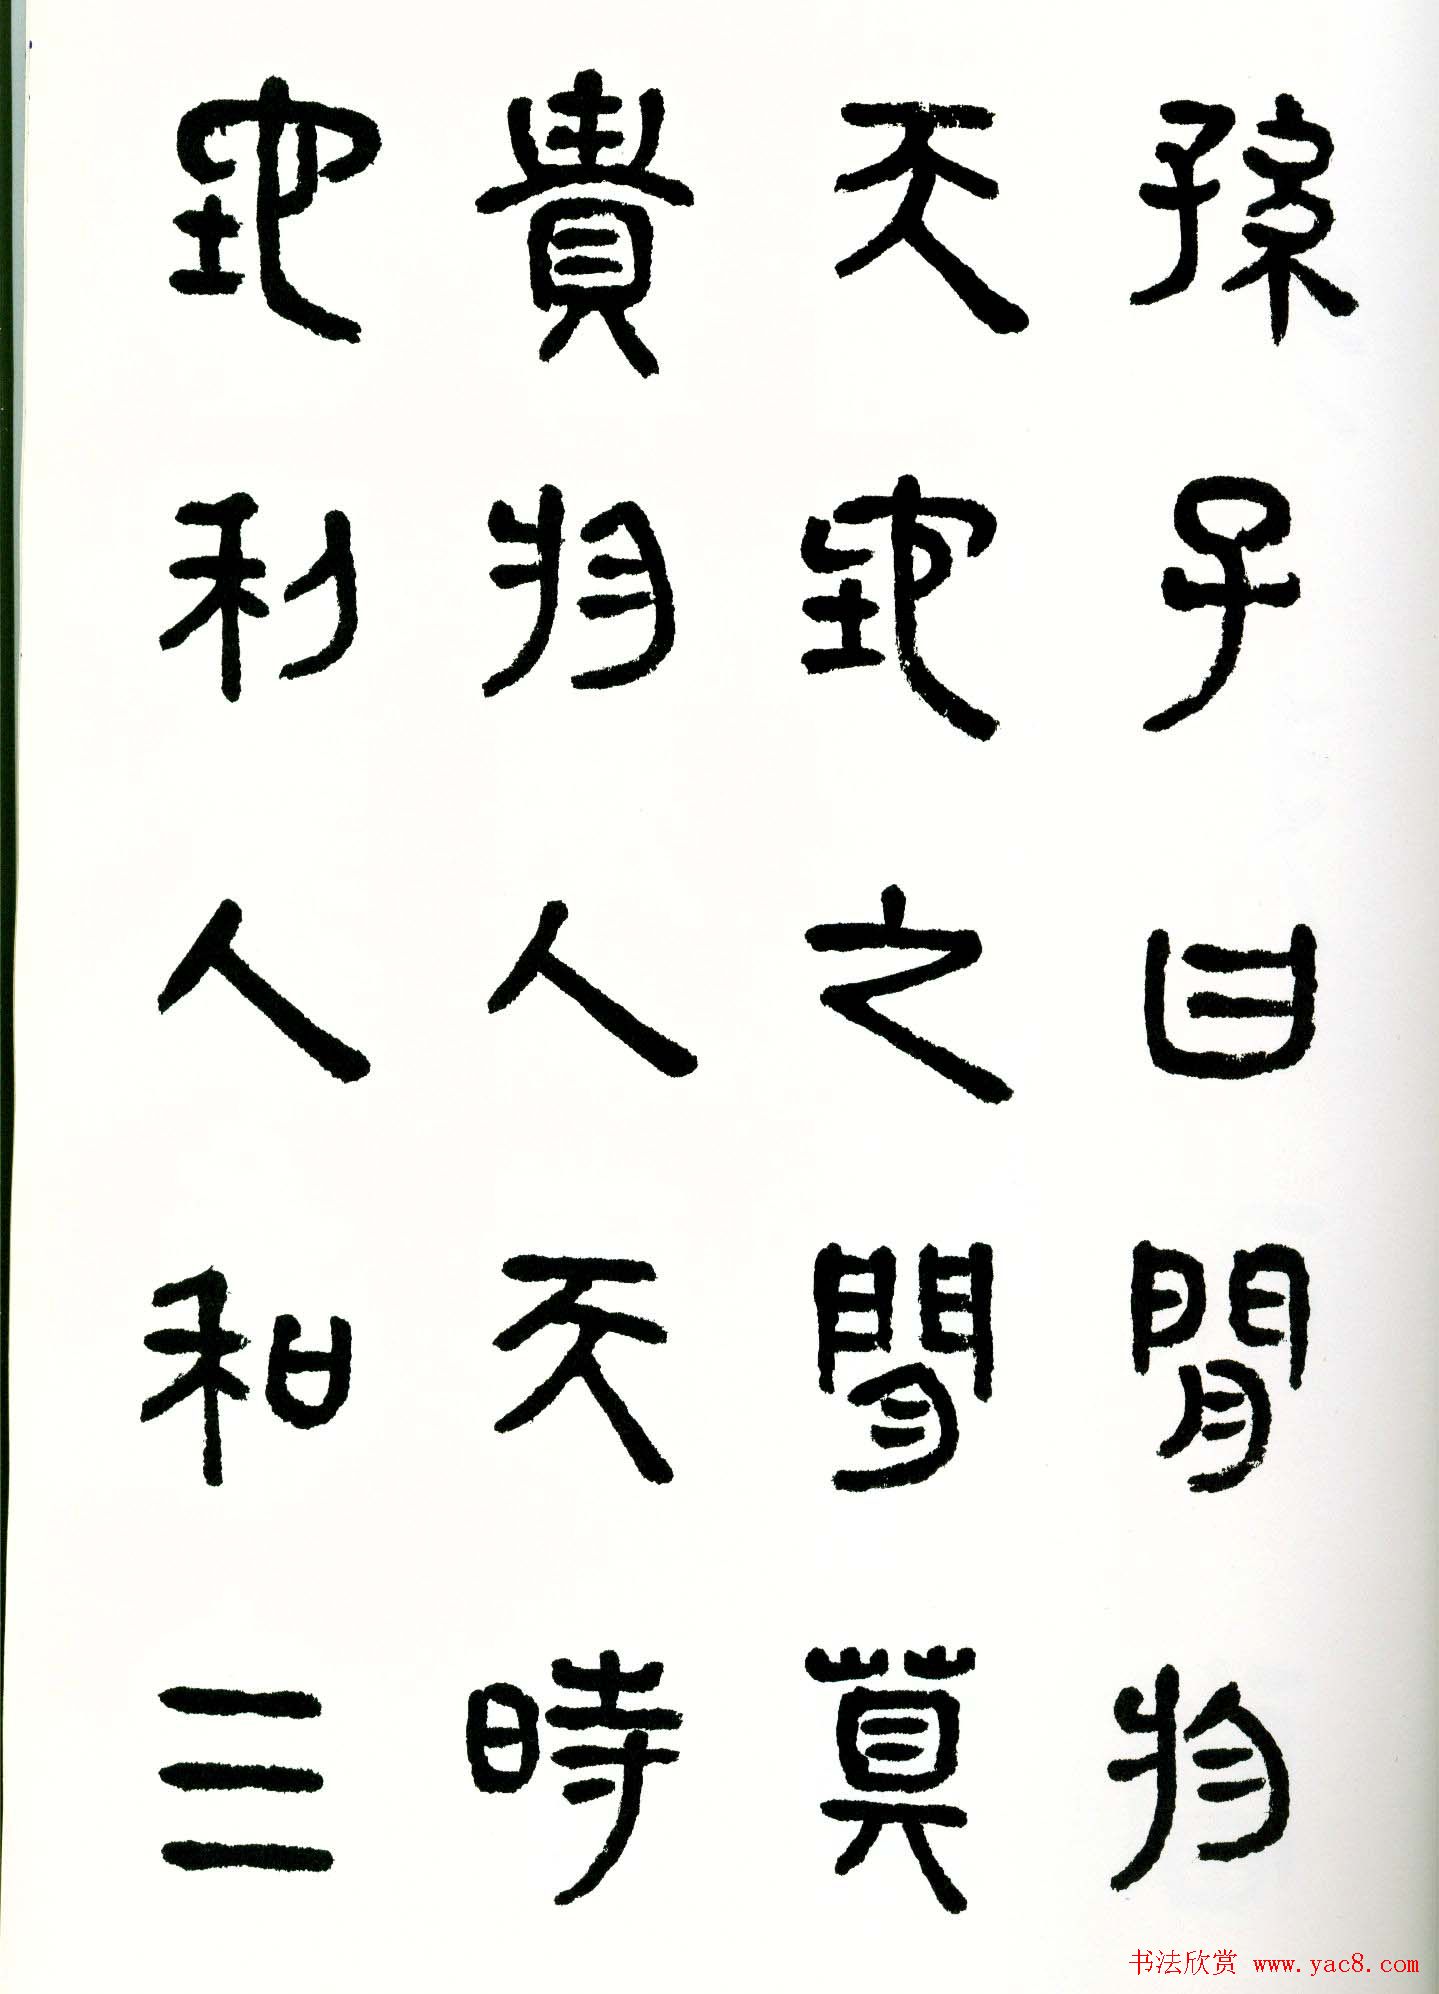 孫子曰閒於
天地之閒莫
貴於人天時
地利人和三
书法欣赏 www.yac8.com